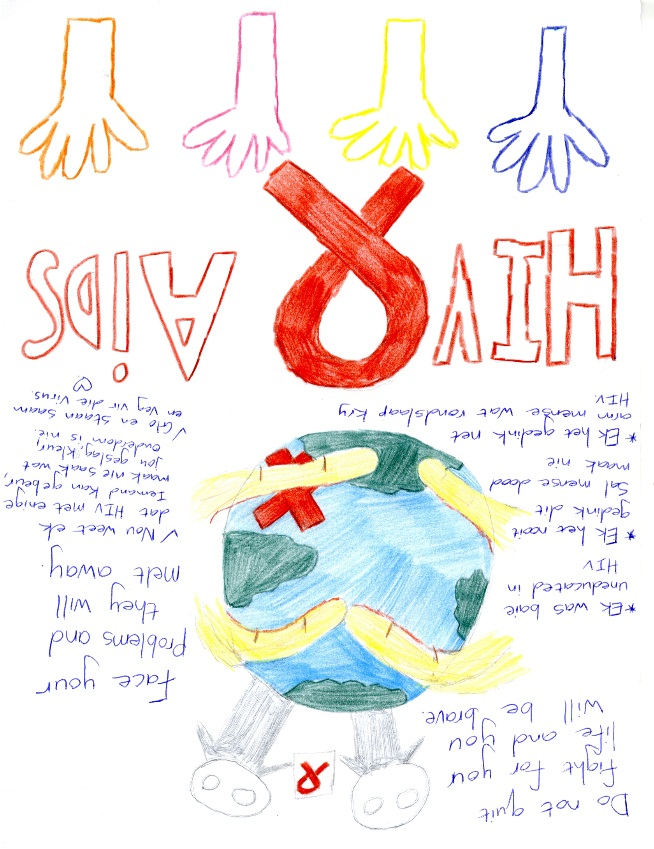 Do not quit
fight for your
life and you
will be brave.
Face your
Problems and
they will
melt away.
*Ek was baie
uneducated in
HIV
*Ek het nooit
gedink dit
Sal mense dood
maak nie
*Ek het gedink net
arm mense wat rondslaap kry
HIV
✓ Nou weet ek
dat HIV met enige
Iemand kan gebeur,
maak nie saak wat
jou geslag, kleur,
ouderdom is nie.
✓ Glo en staan saam
en veg vir die virus.
HIV AiDS